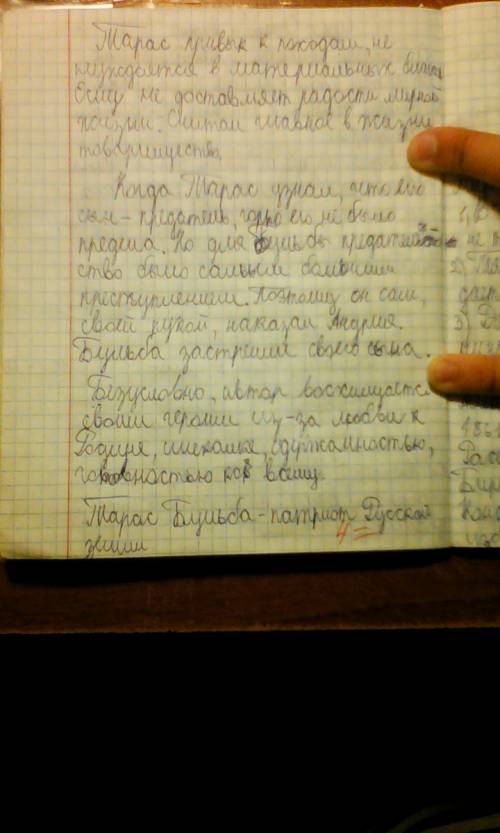 Тарас привык к походам, не
нуждается в материальных
Ему не доставляет радости мирной
жизни. Считал главное в жизни
товарищество.
Когда Тарас узнал, что его
сын - предатель, горю его не было
предела. Но для Бульбы предатель-
ство было самым большим
преступлением. Поэтому он сам,
своей рукой, наказал Андрия.
Бульба застрелил своего сына.
Безусловно, автор восхищается
своим героям из-за любви к
Родине, смекалке, сдержанностью,
готовностью ко всему.
Тарас Бульба - патриот Русской
земли
4